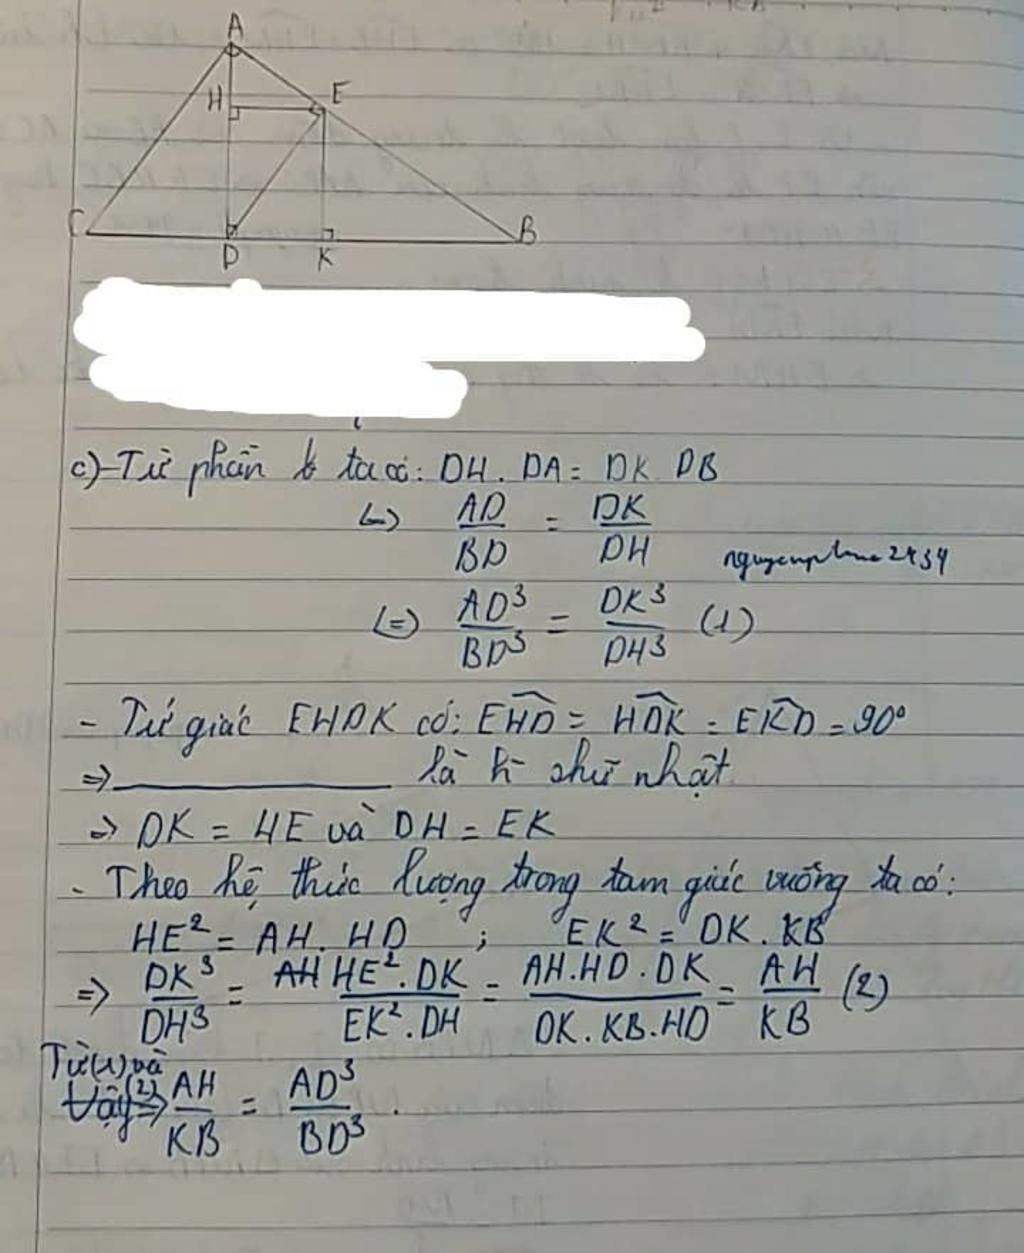 A
H
E
C
D
K
B
c)-Từ phần b ta có: DH. DA = DK. DB
(-) AD/BD = DK/DH
nguyenphuc2434
(=) AD³/BD³ = DK³/DH³ (1)
- Tứ giác EHDK có: EHD = HDK = EKD = 90°
=> ________ là h chữ nhật.
=> DK = HE và DH = EK
- Theo hệ thức lượng trong tam giác vuông ta có:
HE² = AH. HD ; EK² = DK. KB
=> DK³/DH³ = AH HE². DK/EK². DH = AH.HD. DK/DK. KB. HD = AH/KB (2)
Từ (1) và
Vậy (2) => AH/KB = AD³/BD³.